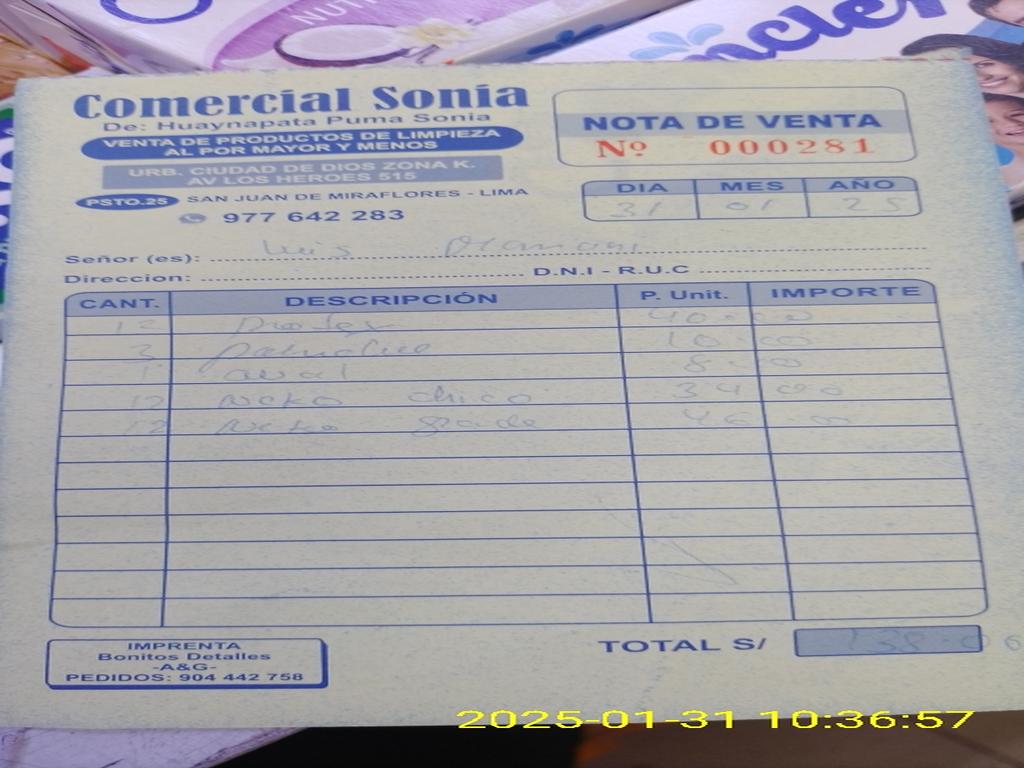 NUT
ncler
Comercial Sonia
De: Huaynapata Puma Sonia
VENTA DE PRODUCTOS DE LIMPIEZA
AL POR MAYOR Y MENOS
URB. CIUDAD DE DIOS ZONA K.
AV LOS HEROES 515
PSTO.25 SAN JUAN DE MIRAFLORES - LIMA
977 642 283
NOTA DE VENTA
Nº 000281
DIA MES AÑO
31 01 25
Señor (es): Luis Mamani
Direccion: D.N.I - R.U.C
CANT. DESCRIPCIÓN P. Unit. IMPORTE
12 Protex 40.00
3 10.00
1 aval 8.00
12 Neko chico 34.00
12 Neko grande 46.00
TOTAL S/ 138.00
IMPRENTA
Bonitos Detalles
-A&G-
PEDIDOS: 904 442 758
2025-01-31 10:36:57